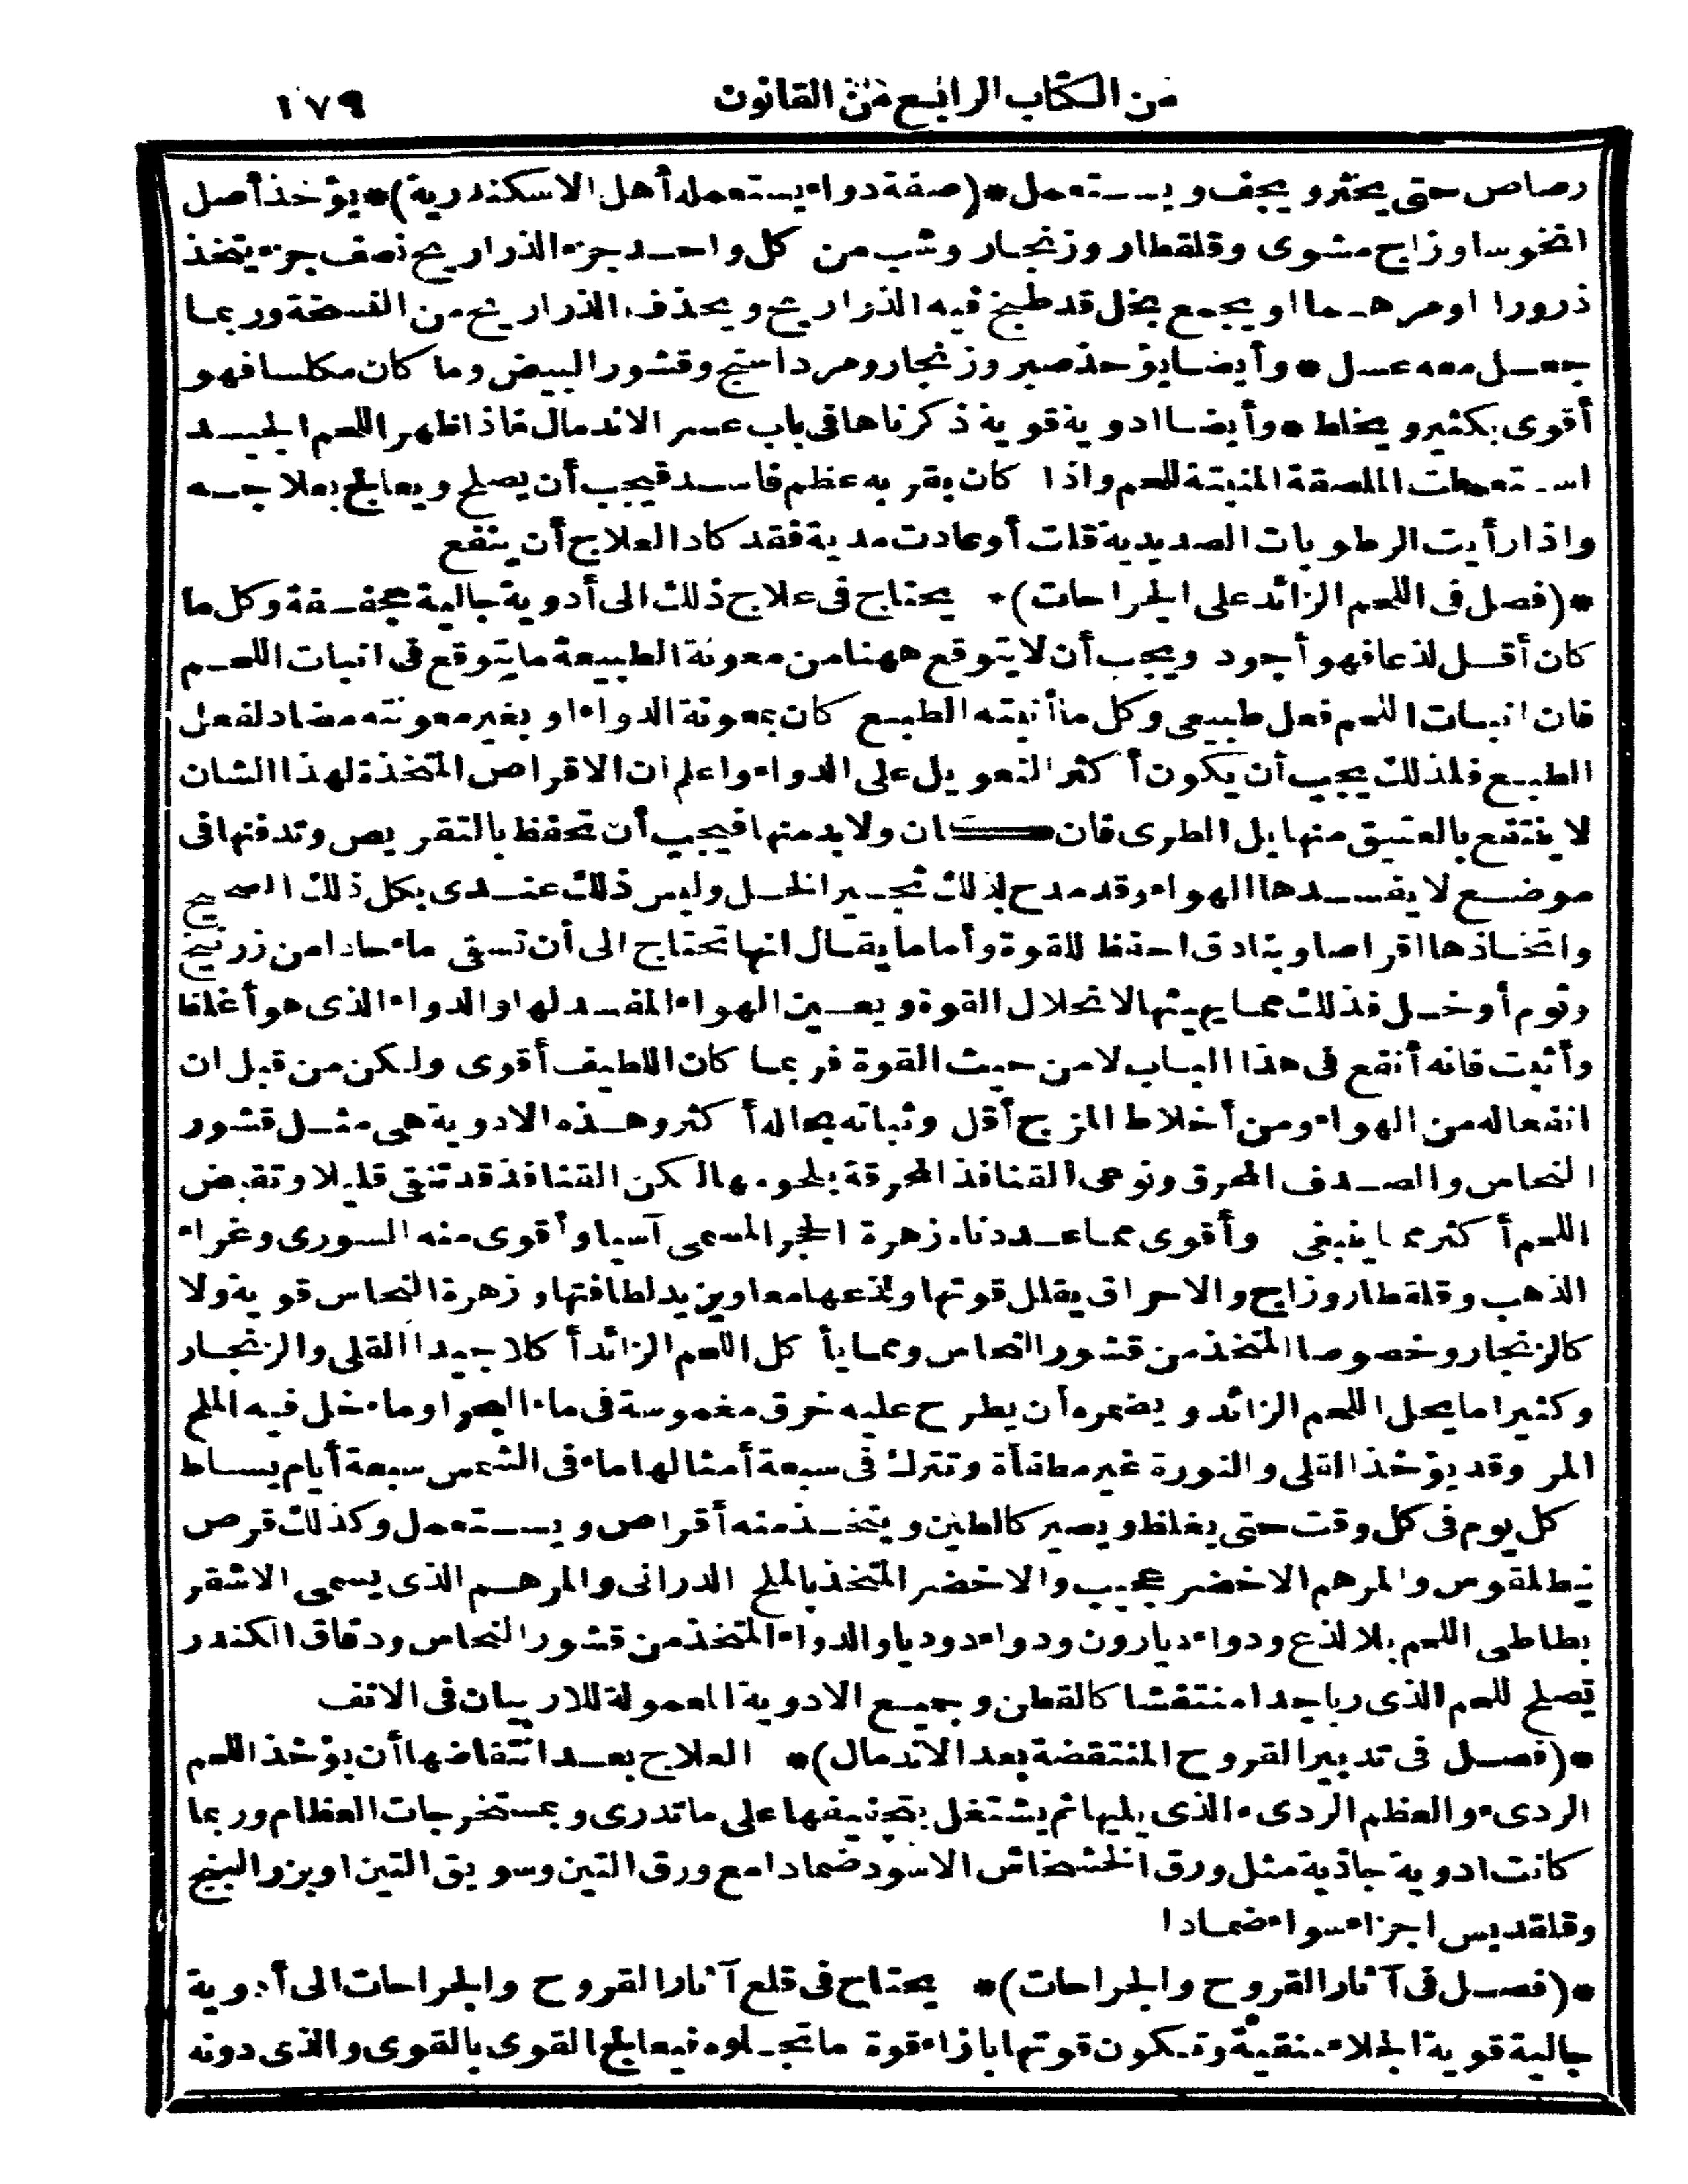 من الكتاب الرابع من القانون ١٧٩
رصاص حتى يخثر ويجف ويستعمل *(صفة دواء يستعمله أهل الاسكندرية)* يؤخذ أصل
انخوسا وزاج مشوى وقلقطار وزنجار وشب من كل واحد جزء الذراريح نصف جزء يتخذ
ذرورا او مرهما او يجمع بخل قد طبخ فيه الذراريح ويحذف الذراريح من النسخة وربما
جعل معه عسل * وأيضا يؤخذ صبر وزنجار ومرداسنج وقشور البيض وما كان مكلسا فهو
أقوى بكثير ويخلط * وأيضا ادوية قوية ذكرناها فى باب عسر الاندمال فاذا ظهر اللحم الجيد
استعملت الملصقة المنبتة للحم واذا كان بقربه عظم فاسد فيجب أن يصلح ويعالج بعلاجه
واذا رأيت الرطوبات الصديدية قلت أو عادت مدية فقد كاد العلاج أن ينفع
*(فصل فى اللحم الزائد على الجراحات)* يحتاج فى علاج ذلك الى أدوية جالية مجففة وكل ما
كان أقل لذعا فهو أجود ويجب أن لا يتوقع ههنا من معونة الطبيعة ما يتوقع فى انبات اللحم
فان انبات اللحم فعل طبيعى وكل ما أنبته الطبع كان بمعونة الدواء او بغير معونته مضاد لفعل
الطبع فلذلك يجب أن يكون أكثر التعويل على الدواء واعلم ان الاقراص المتخذة لهذا الشان
لا ينتفع بالعتيق منها بل الطرى فان كان ولا بد منها فيجب أن تحفظ بالتقريص وتدفنها فى
موضع لا يفسدها الهواء وقد مدح لذلك ثجير الخل وليس ذلك عندى بكل ذلك الصحيح
واتخاذها اقراصا وبنادق احفظ للقوة وأما ما يقال انها تحتاج الى أن تسقى ماء حادا من زرنيخ
وثوم أو خل فذلك مما يهيئها لانحلال القوة ويعين الهواء المفسد لها والدواء الذى هو أغلظ
وأثبت فانه أنفع فى هذا الباب لا من حيث القوة فربما كان اللطيف أقوى ولكن من قبل ان
انفعاله من الهواء ومن أخلاط المزج أقل وثباته بحاله أكثر وهذه الادوية هى مثل قشور
النحاس والصدف المحرق ونوعى القنافذ المحرقة بلحومها لكن القنافذ قد تنقى قليلا وتقبض
اللحم أكثر مما ينبغى وأقوى مما عددناه زهرة الحجر المسمى آسيا وأقوى منه السورى وغراء
الذهب وقلقطار وزاج والاحراق يقلل قوتها ولذعها معا ويزيد لطافتها وزهرة النحاس قوية ولا
كالزنجار وخصوصا المتخذ من قشور النحاس ومما يأكل اللحم الزائد أكلا جيدا القلى والزنجار
وكثيرا ما يحل اللحم الزائد ويضمره أن يطرح عليه خرق مغموسة فى ماء البحر او ماء خل فيه الملح
المر وقد يؤخذ القلى والنورة غير مطفأة وتترك فى سبعة أمثالها ماء فى الشمس سبعة أيام يساط
كل يوم فى كل وقت حتى يغلظ ويصير كالطين ويتخذ منه أقراص ويستعمل وكذلك قرص
نيطلقوس والمرهم الاخضر عجيب والاخضر المتخذ بالملح الدرانى والمرهم الذى يسمى الاشقر
يطاطى اللحم بلا لذع ودواء ديارون ودواء دوديا والدواء المتخذ من قشور النحاس ودقاق الكندر
تصلح للحم الذى رباجدا منتفشا كالقطن وجميع الادوية المعمولة للاربيان فى الانف
*(فصل فى تدبير القروح المنتقضة بعد الاندمال)* العلاج بعد انتقاضها أن يؤخذ اللحم
الردىء والعظم الردىء الذى يليها ثم يشتغل بتجفيفها على ما تدرى وبمستخرجات العظام وربما
كانت ادوية جاذبة مثل ورق الخشخاش الاسود ضمادا مع ورق التين وسويق التين او بزر البنج
وقلقديس اجزاء سواء ضمادا
*(فصل فى آثار القروح والجراحات)* يحتاج فى قلع آثار القروح والجراحات الى أدوية
جالية قوية الجلاء منقية وتكون قوتها بازاء قوة ما تجلوه فيعالج القوى بالقوى والذى دونه